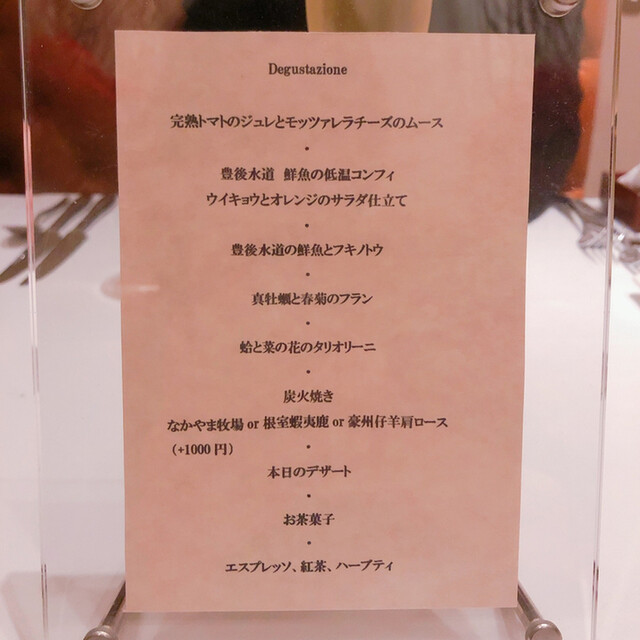 Degustazione
完熟トマトのジュレとモッツァレラチーズのムース
・
豊後水道 鮮魚の低温コンフィ
ウイキョウとオレンジのサラダ仕立て
・
豊後水道の鮮魚とフキノトウ
・
真牡蠣と春菊のフラン
・
蛤と菜の花のタリオリーニ
・
炭火焼き
なかやま牧場 or 根室蝦夷鹿 or 豪州仔羊肩ロース
（+1000 円）
・
本日のデザート
・
お茶菓子
・
エスプレッソ、紅茶、ハーブティ